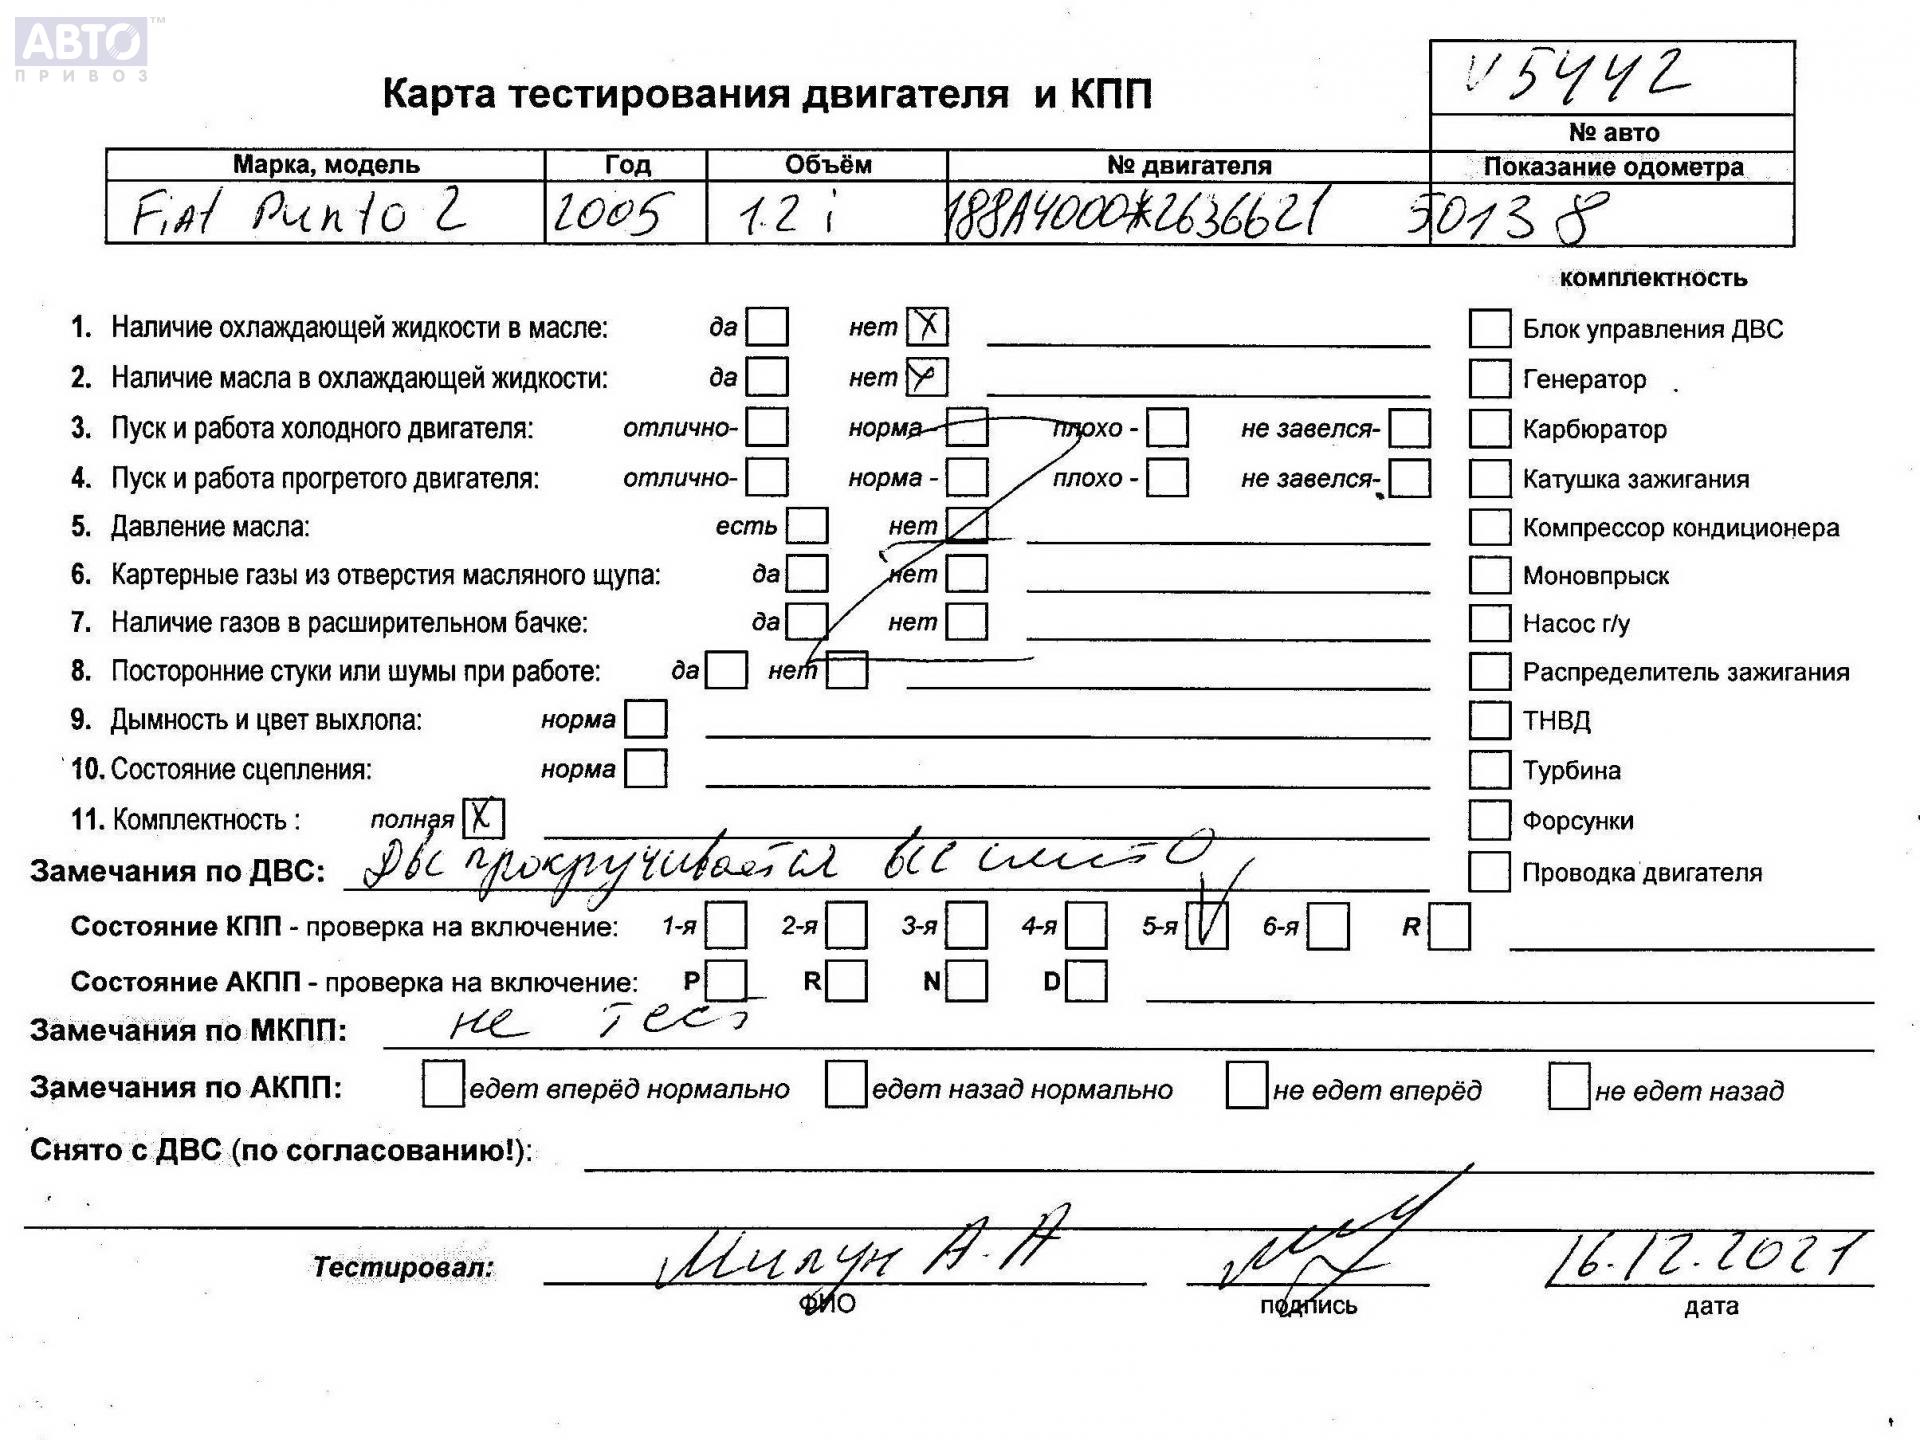 АВТО™
ПРИВОЗ
V5442
Карта тестирования двигателя и КПП
№ авто
Марка, модель Год Объём № двигателя Показание одометра
Fiat Punto 2 2005 1.2 i 188A4000*2636621 50138
комплектность
1. Наличие охлаждающей жидкости в масле: да нет X Блок управления ДВС
2. Наличие масла в охлаждающей жидкости: да нет X Генератор
3. Пуск и работа холодного двигателя: отлично- норма- плохо - не завелся- Карбюратор
4. Пуск и работа прогретого двигателя: отлично- норма - плохо - не завелся- Катушка зажигания
5. Давление масла: есть нет Компрессор кондиционера
6. Картерные газы из отверстия масляного щупа: да нет Моновпрыск
7. Наличие газов в расширительном бачке: да нет Насос г/у
8. Посторонние стуки или шумы при работе: да нет Распределитель зажигания
9. Дымность и цвет выхлопа: норма ТНВД
10. Состояние сцепления: норма Турбина
11. Комплектность : полная X Форсунки
Замечания по ДВС: Двс прокручивается все слито Проводка двигателя
Состояние КПП - проверка на включение: 1-я 2-я 3-я 4-я 5-я 6-я R
Состояние АКПП - проверка на включение: P R N D
Замечания по МКПП: не тест
Замечания по АКПП: едет вперёд нормально едет назад нормально не едет вперёд не едет назад
Снято с ДВС (по согласованию!):
Тестировал: Милун А.А 16.12.2021
ФИО подпись дата